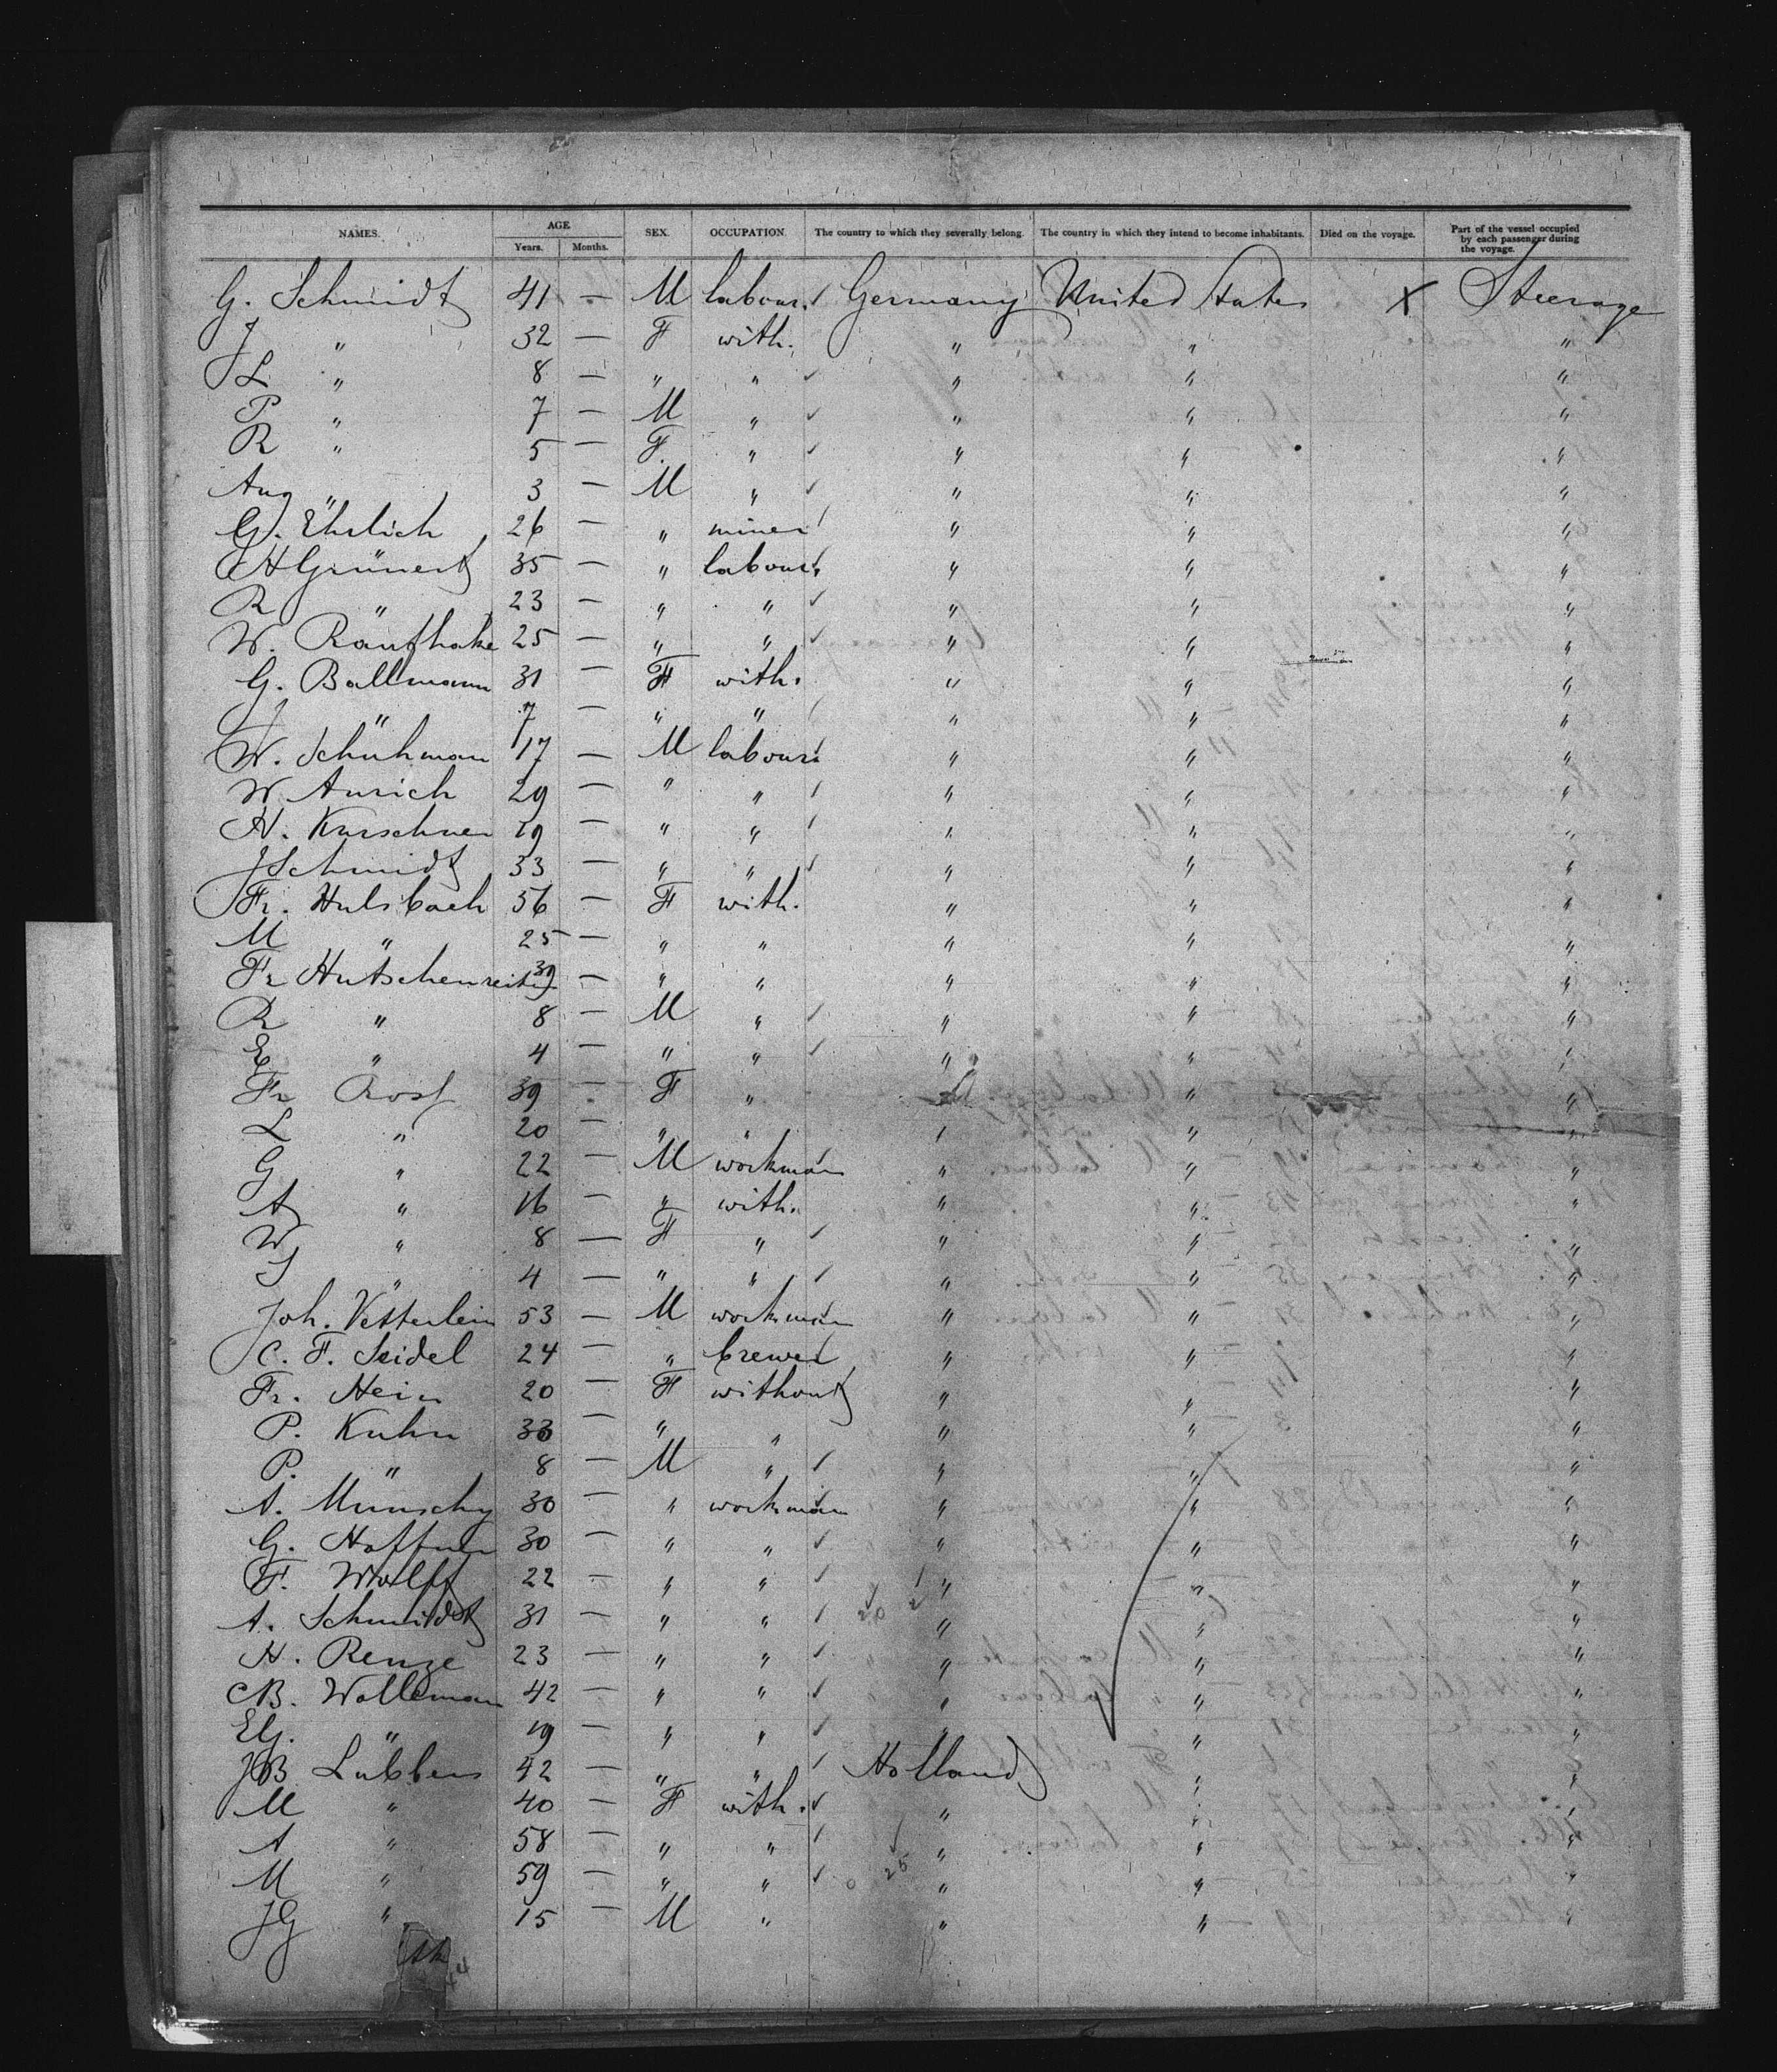 NAMES. AGE SEX. OCCUPATION. The country to which they severally belong. The country in which they intend to become inhabitants. Died on the voyage. Part of the vessel occupied by each passenger during the voyage.
Years. Months.
G. Schmidt 41 — M labour. Germany United States X Steerage
J " 32 — F with. " " "
L " 8 — " " " " "
P " 7 — M " " " "
R " 5 — F. " " " "
Aug " 3 — M " " " "
G. Ehrlich 26 — " miner " " "
H Grünert 35 — " labour. " " "
R " 23 — " " " " "
W. Raufhake 25 — " " " " "
G. Ballmann 31 — F with. " " "
J " 7 — " " " " "
W. Schuhman 17 — M labour. " " "
W. Aurich 29 — " " " " "
H. Kurschner 19 — " " " " "
J Schmidt 33 — " " " " "
Fr. Hulsbach 56 — F with. " " "
M " 25 — " " " " "
Fr Hutschenreiter 39 — " " " " "
R " 8 — M " " " "
E " 4 — " " " " "
Fr Rost 39 F " " "
L " 20 — " " " " "
G " 22 — M workman " " "
A " 16 — " with. " " "
W " 8 — F " " " "
S " 4 — " " " " "
Joh. Vetterlein 53 — M workman " " "
C. F. Seidel 24 — " brewer " " "
Fr. Hein 20 — F without " " "
P. Kuhn 33 — " " " " "
P. " 8 — M " " " "
A. Munschy 30 — " workman " " "
G. Haffner 30 — " " " " "
F. Wolff 22 — " " " " "
A. Schmidt 31 — " " " " "
H. Renze 23 — " " " " "
CB. Walleman 42 — " " " " "
Elg. " 19 — " " " " "
JB Lubbers 42 — " " Holland " "
M " 40 — F with. " " "
A " 58 — " " " " "
M " 59 — " " " " "
JG " 15 — M " " " "
44